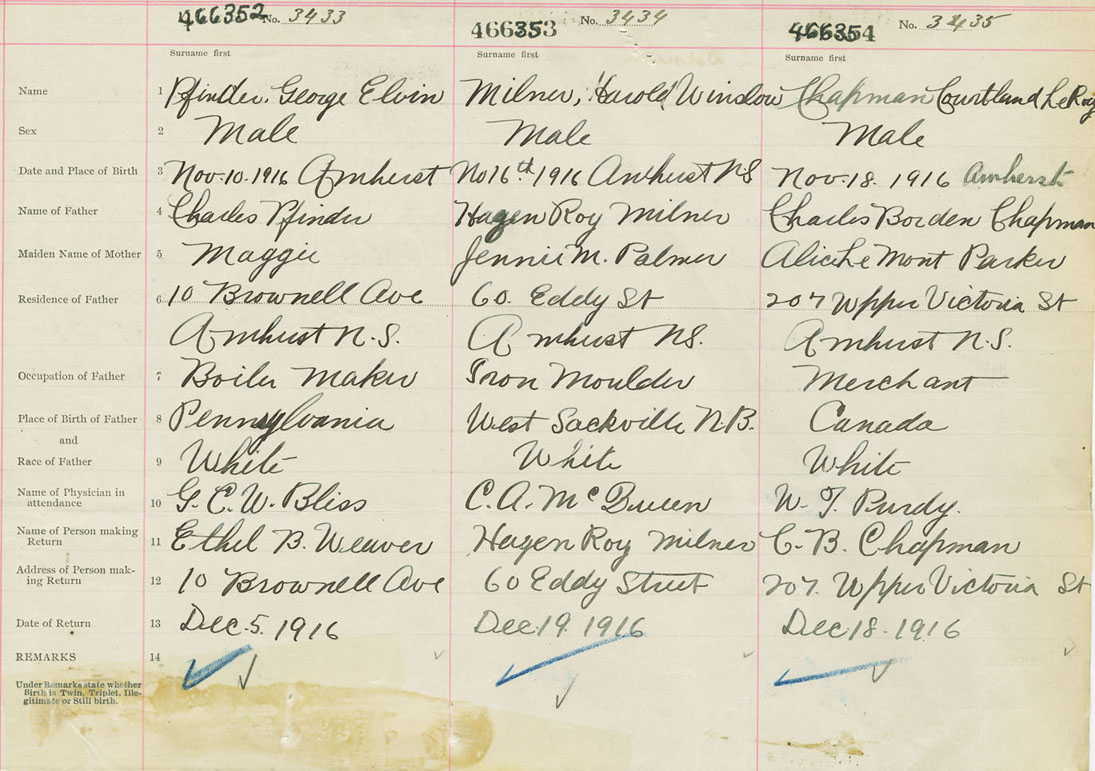 466352 No. 3433 466353 No. 3434 466354 No. 3435
Surname first Surname first Surname first
Name 1 Pfinder, George Elvin Milner, Harold Winslow Chapman Courtland LeRoy
Sex 2 Male Male Male
Date and Place of Birth 3 Nov. 10. 1916 Amherst No 16th 1916 Amherst NS Nov. 18. 1916 Amherst
Name of Father 4 Charles Pfinder Hagen Roy Milner Charles Borden Chapman
Maiden Name of Mother 5 Maggie Jennie M. Palmer Mont Parker
Residence of Father 6 10 Brownell Ave 60. Eddy St 207 Upper Victoria St
Amherst N.S. Amherst NS. Amherst N.S.
Occupation of Father 7 Boiler Maker Iron Moulder Merchant
Place of Birth of Father 8 Pennsylvania West Sackville N.B. Canada
and
Race of Father 9 White White White
Name of Physician in
attendance 10 G. C. W. Bliss C. A. McQueen W. T. Purdy.
Name of Person making
Return 11 Ethel B. Weaver Hagen Roy Milner C. B. Chapman
Address of Person mak-
ing Return 12 10 Brownell Ave 60 Eddy Street 207. Upper Victoria St
Date of Return 13 Dec. 5. 1916 Dec 19. 1916 Dec. 18. 1916
REMARKS 14
Under Remarks state whether
Birth is Twin, Triplet, Ille-
gitimate or Still birth.